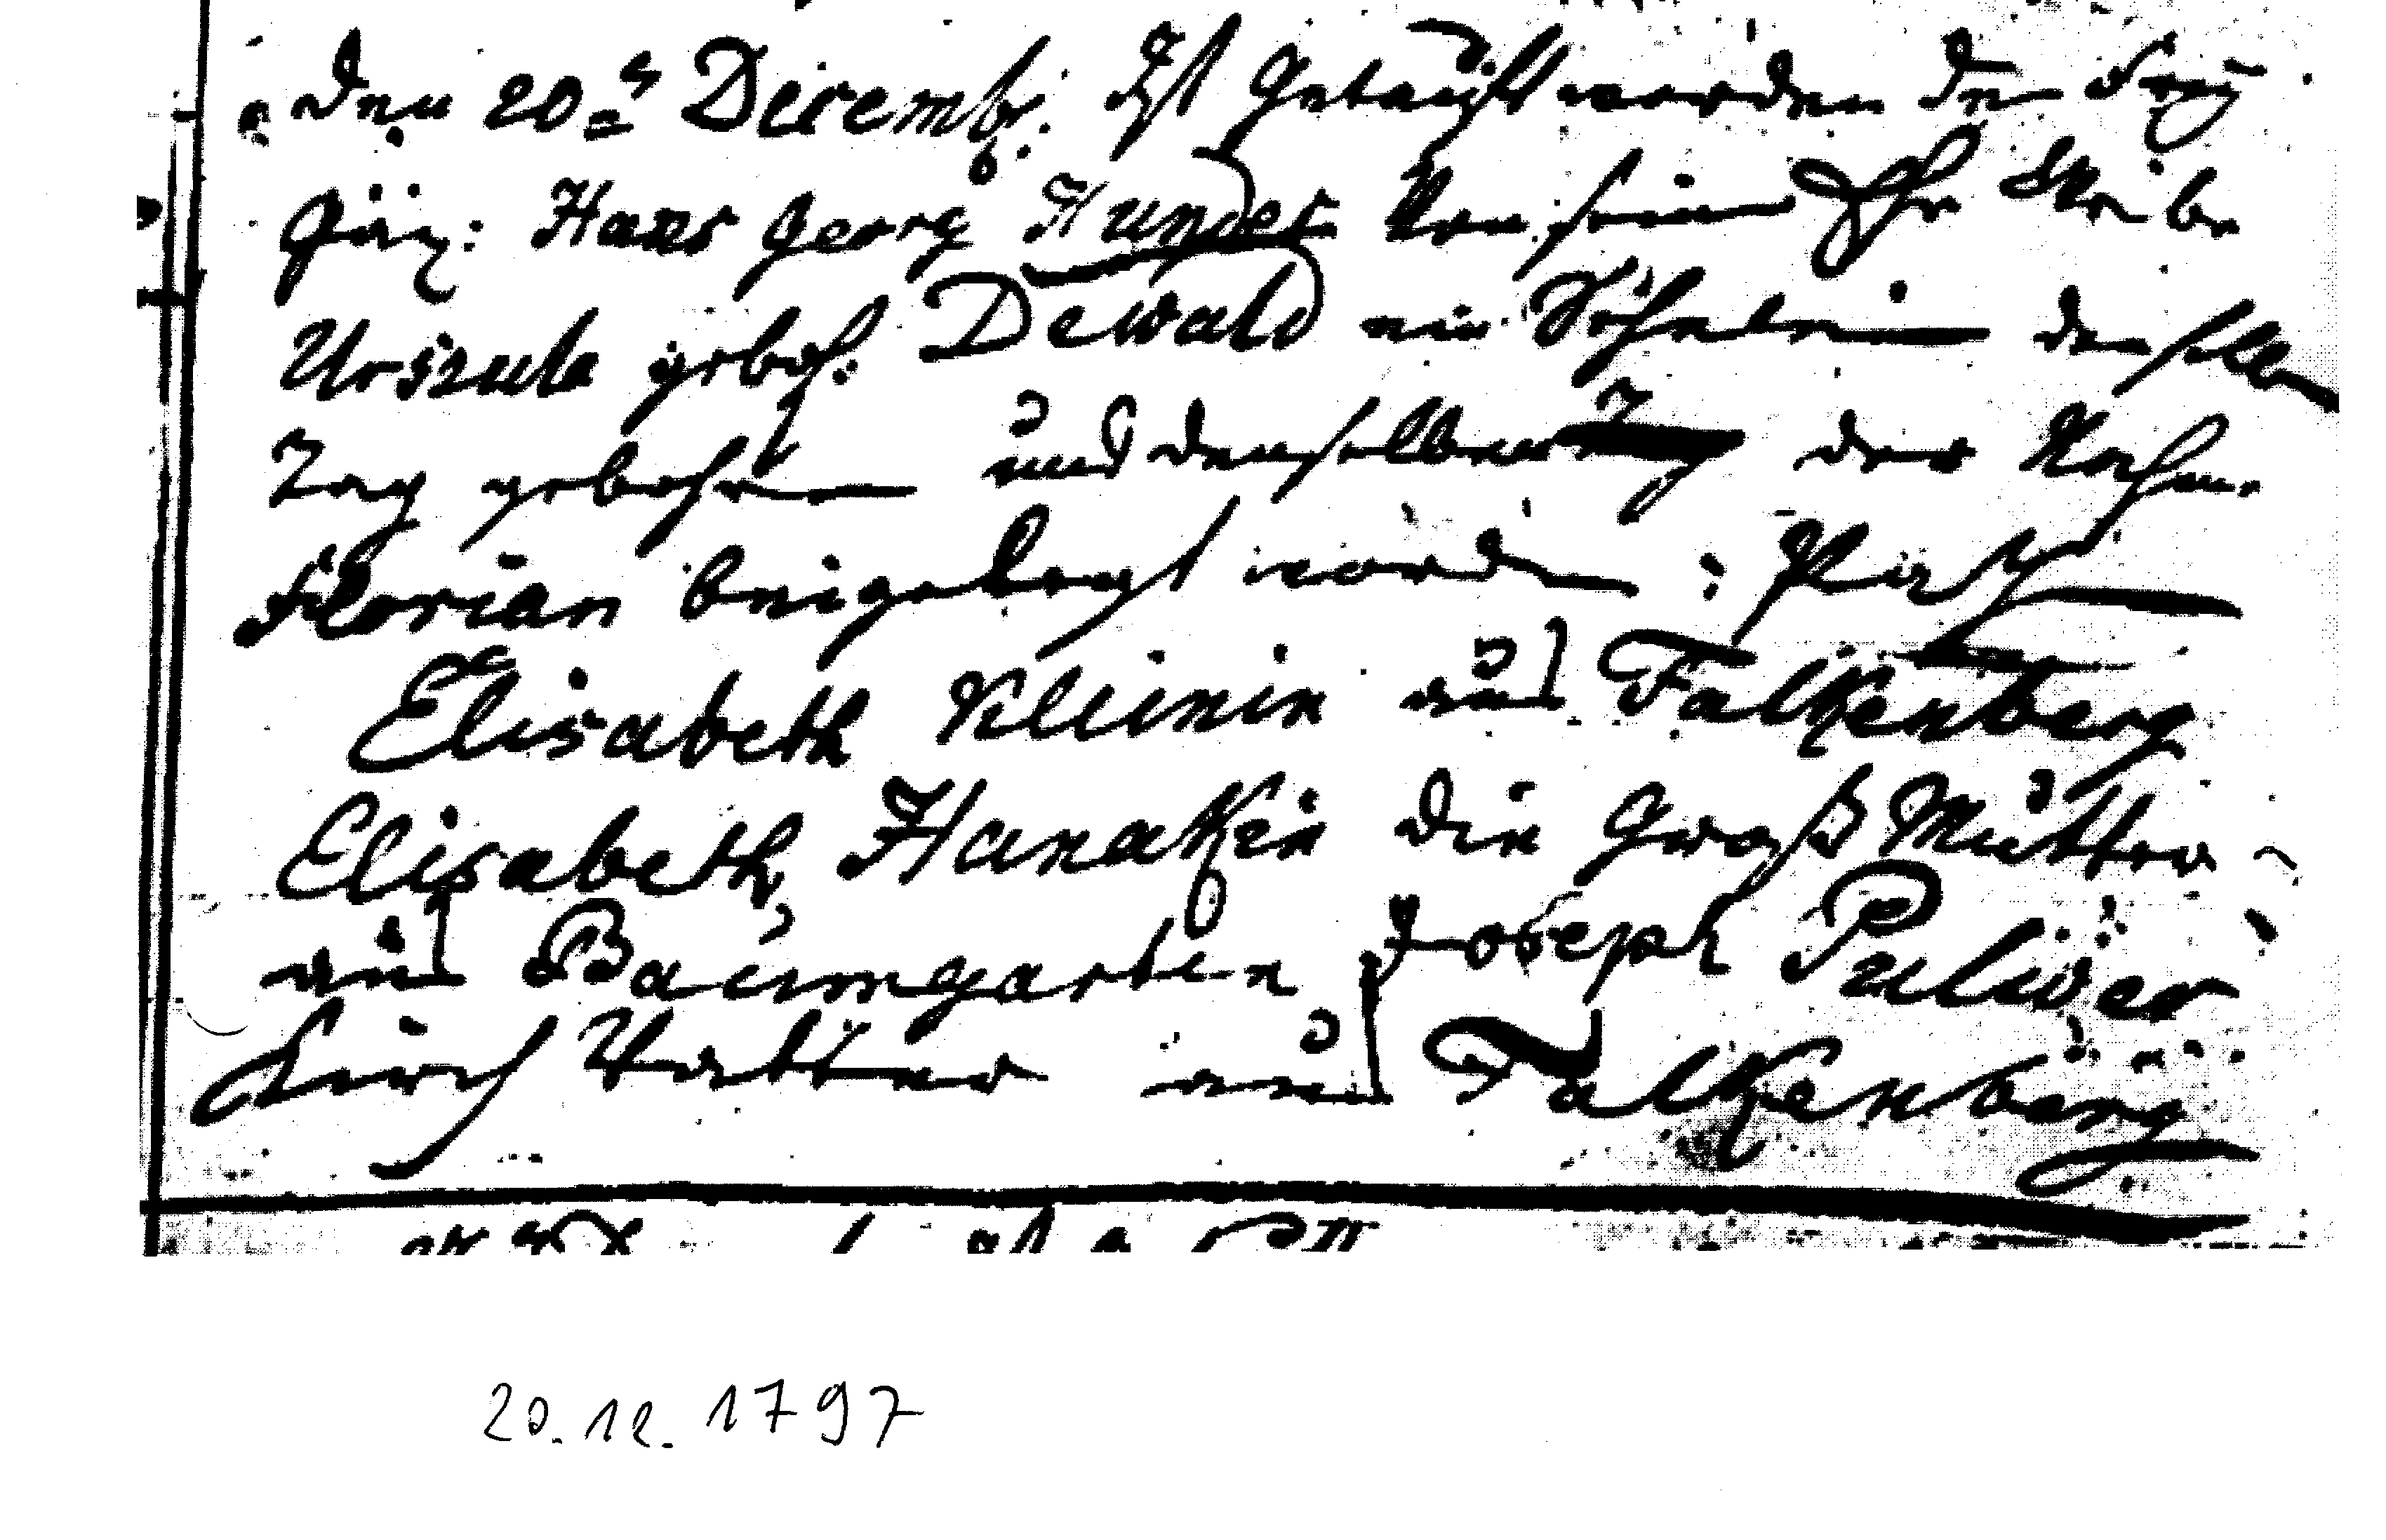 den 20t Decembr: Ist getauft worden dem Frey
Gär: Hans Georg Hunder Von seinem Eh Weibe
Urszula geboh: Dewald ein Söhnlein denselben
Tag gebohren und denselben der Nahm
Florian beigelegt worden: Path
Elisabeth Kleinin aus Falkenberg
Elisabeth Hanakin die Groß Mutter
aus Baumgarten Joseph Pulwer
Kirch Vatter aus Falkenberg
20.12.1797